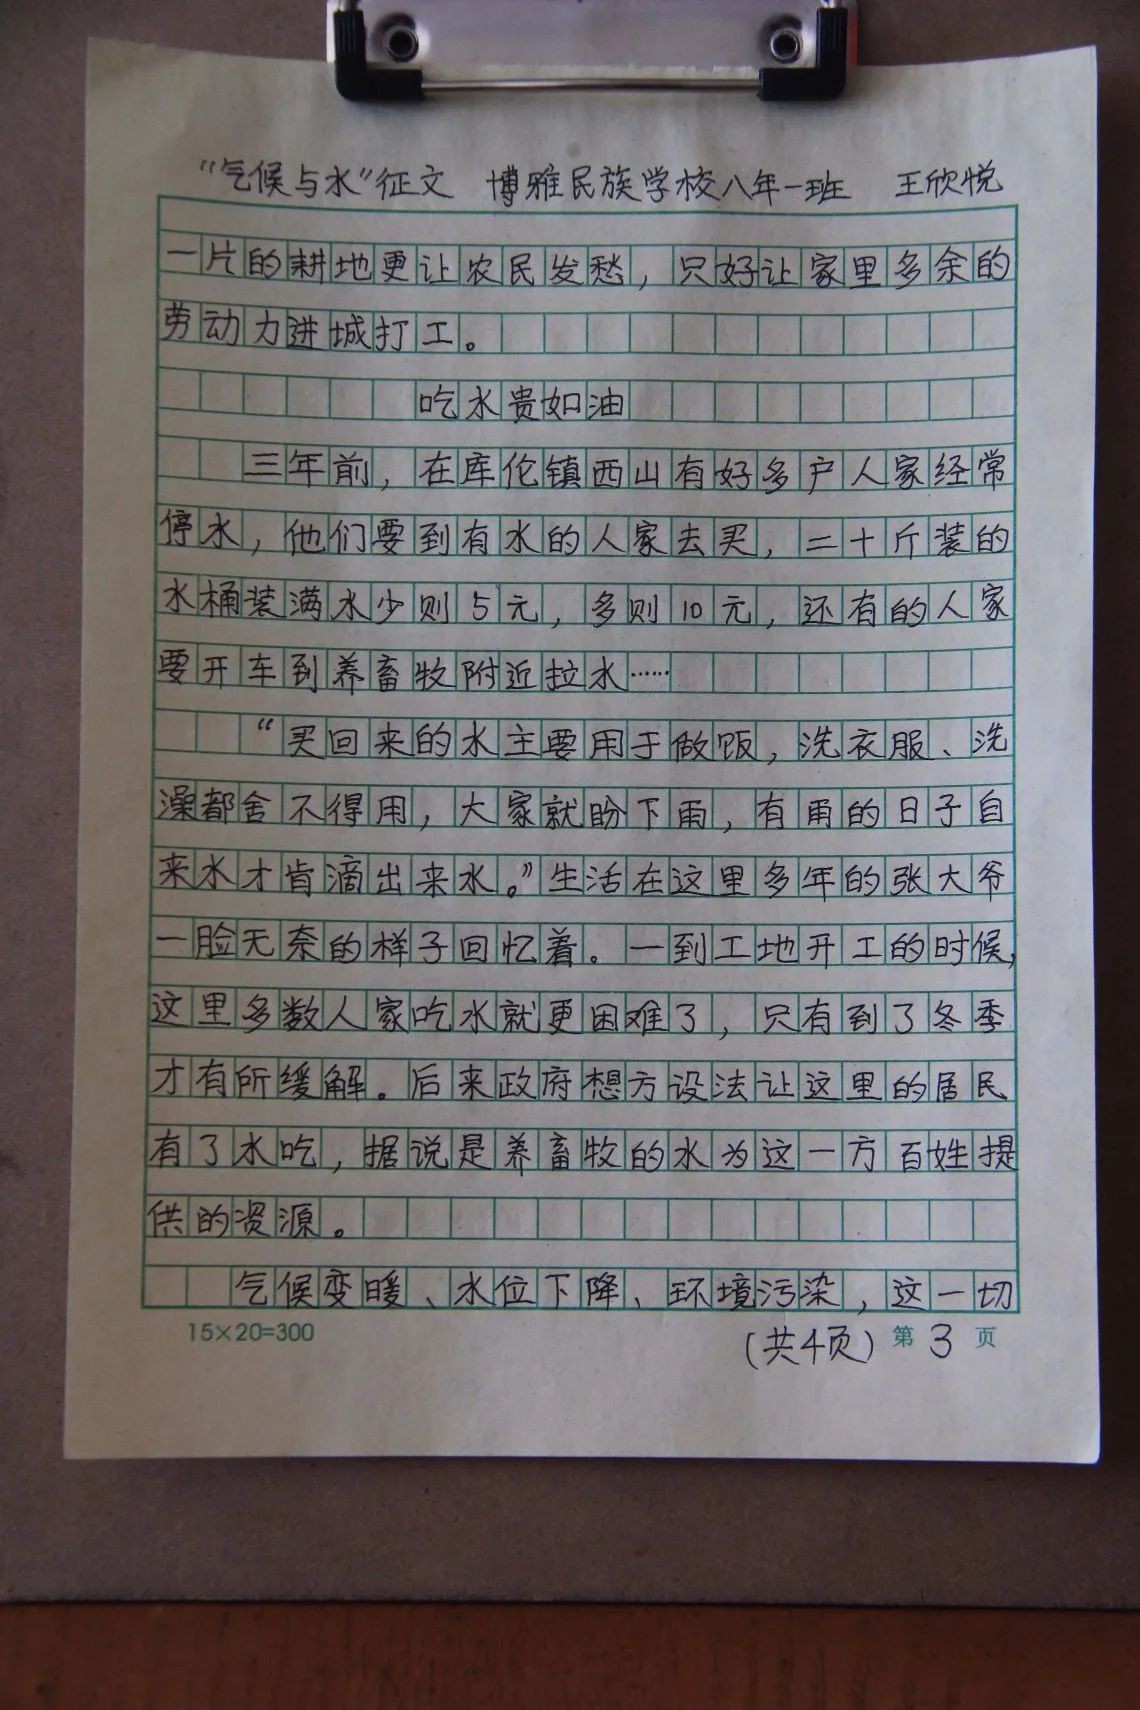 “气候与水”征文 博雅民族学校八年一班 王欣悦
一片的耕地更让农民发愁，只好让家里多余的
劳动力进城打工。
吃水贵如油
三年前，在库伦镇西山有好多户人家经常
停水，他们要到有水的人家去买，二十斤装的
水桶装满水少则5元，多则10元，还有的人家
要开车到养畜牧附近拉水……
“买回来的水主要用于做饭，洗衣服、洗
澡都舍不得用，大家就盼下雨，有雨的日子自
来水才肯滴出来水。”生活在这里多年的张大爷
一脸无奈的样子回忆着。一到工地开工的时候，
这里多数人家吃水就更困难了，只有到了冬季
才有所缓解。后来政府想方设法让这里的居民
有了水吃，据说是养畜牧的水为这一方百姓提
供的资源。
气候变暖、水位下降、环境污染，这一切
15×20=300
（共4页）第 3 页